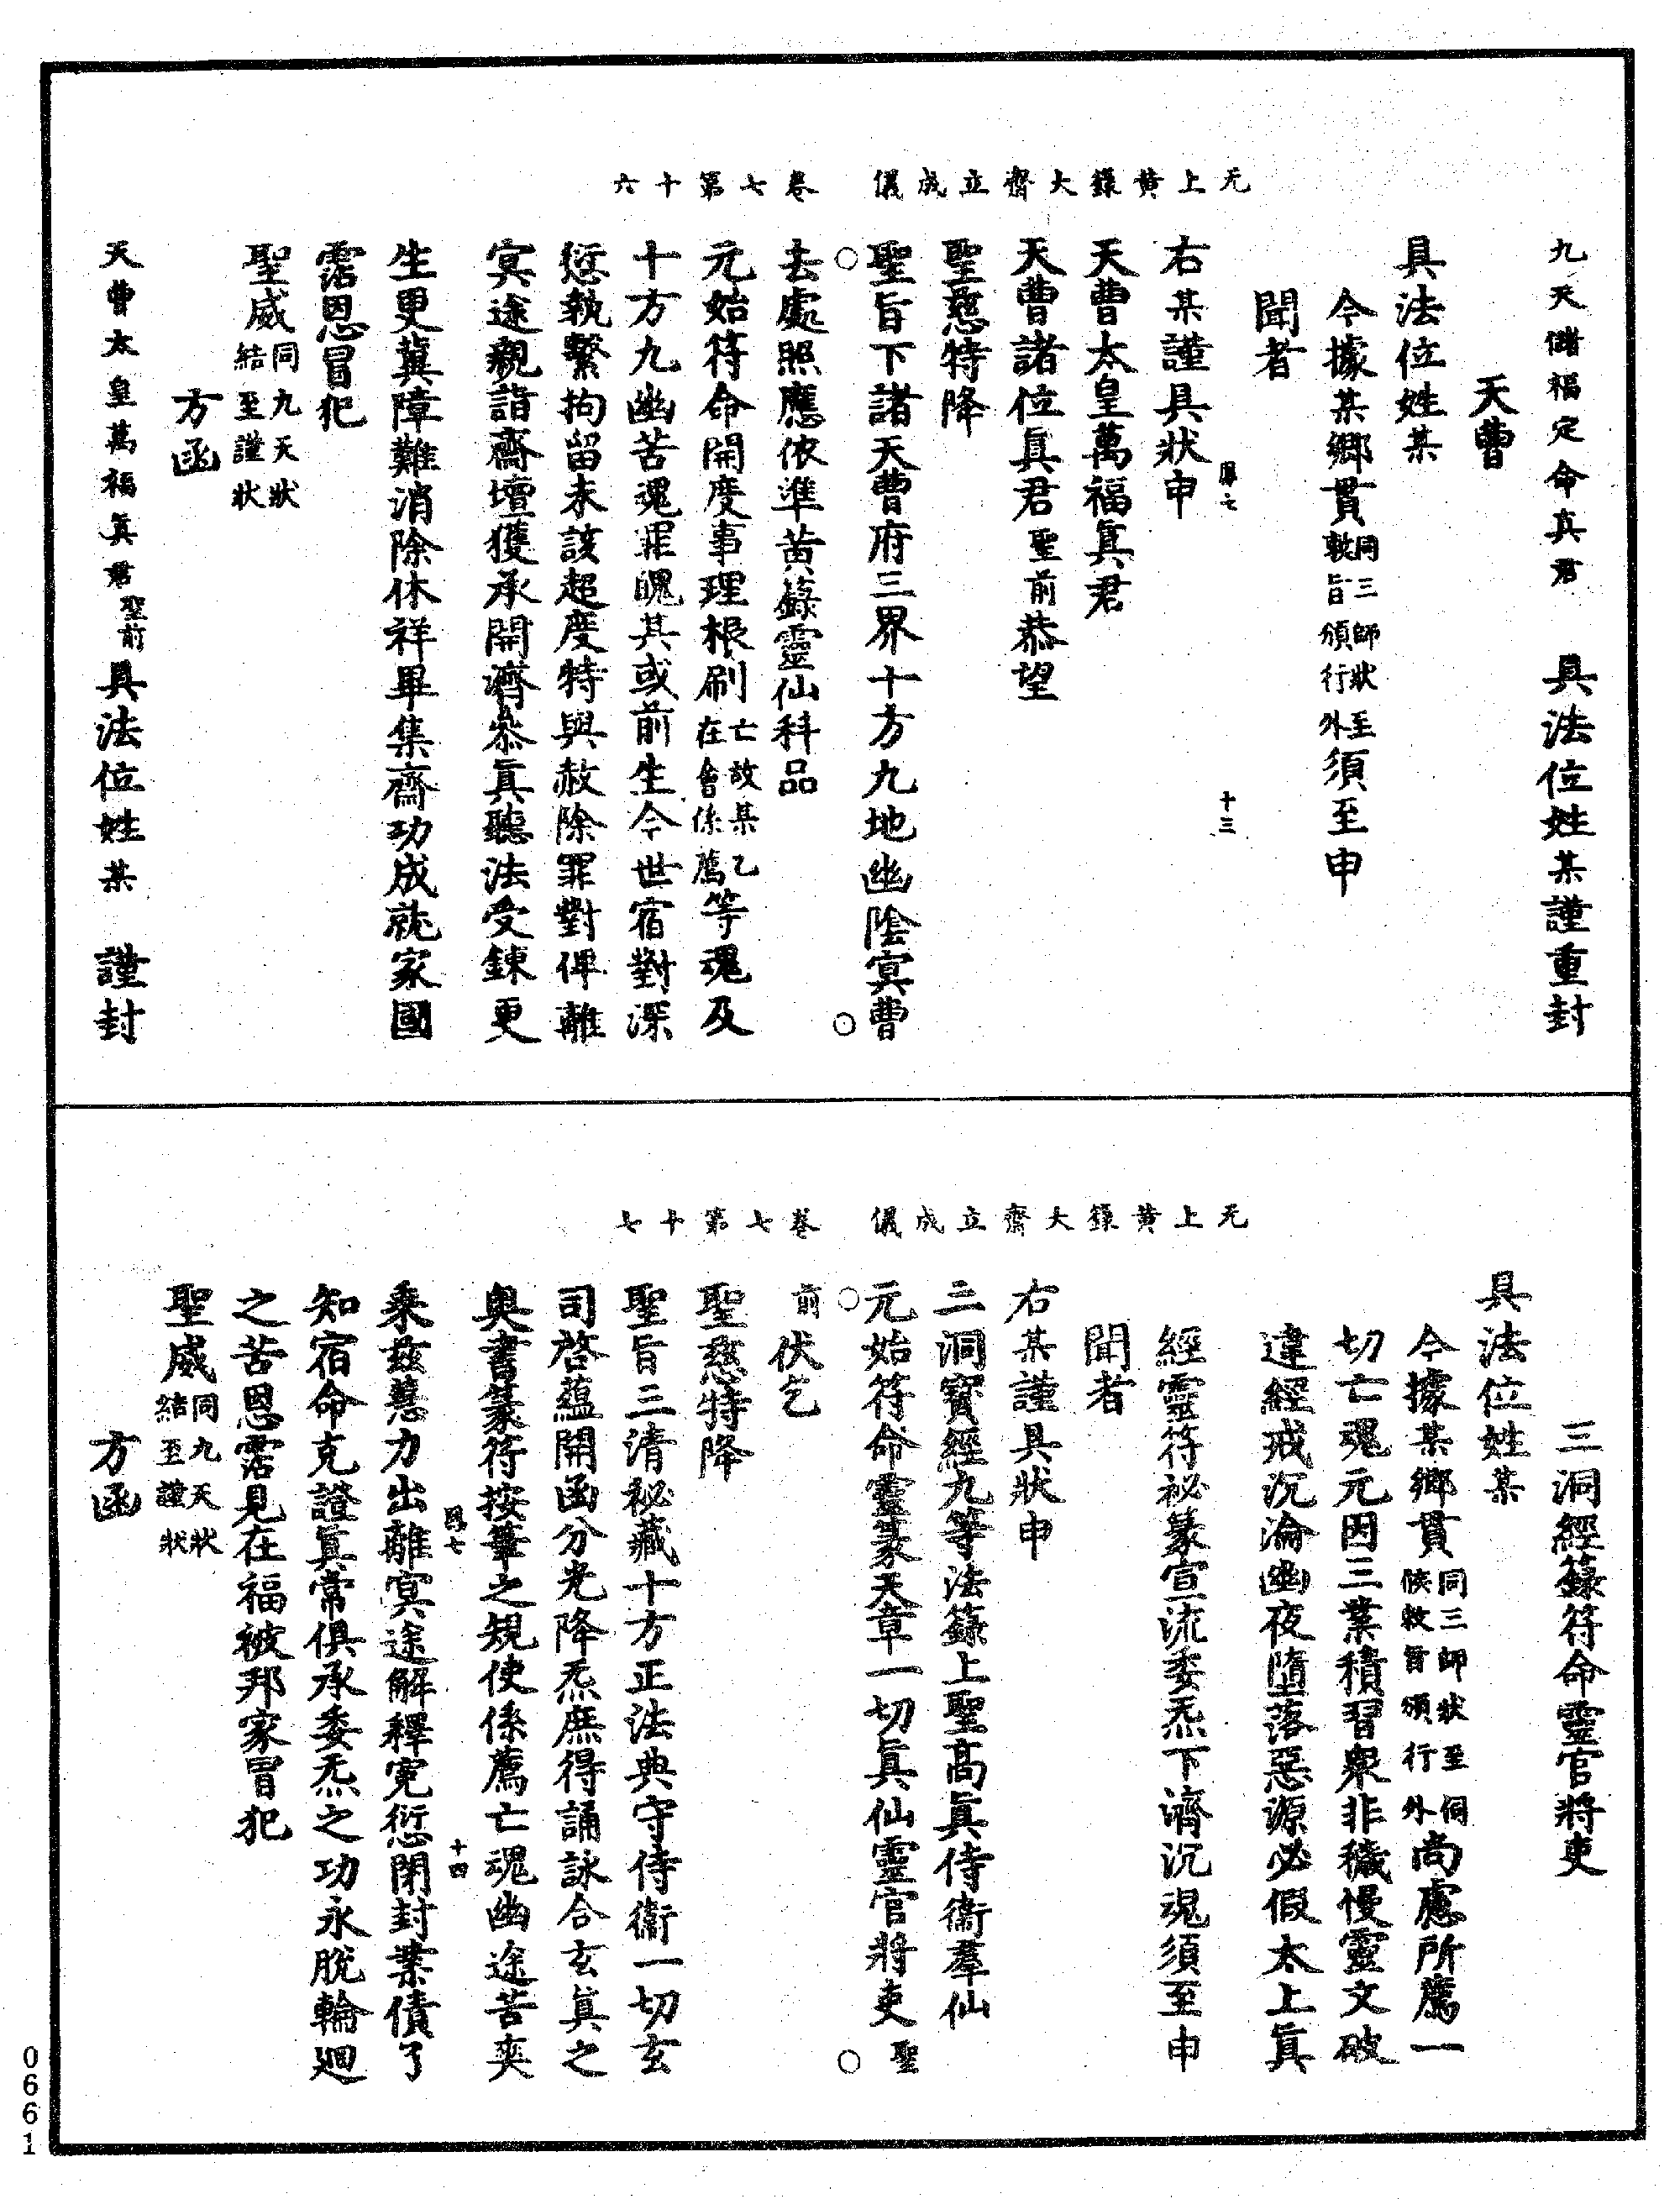 无上黃籙大齋立成儀　卷七第十六
九天儲福定命真君　具法位姓某謹重封
天曹
具法位姓某
今據某鄉貫同三師狀至敕旨頒行外須至申
聞者
十三
右某謹具狀申
天曹太皇萬福真君
天曹諸位真君聖前恭望
聖慈特降
聖旨下諸天曹府三界十方九地幽陰冥曹
去處照應依準黃籙靈仙科品
元始符命開度事理根刷亡故某乙在會係薦等魂及
十方九幽苦魂罪魄其或前生今世宿對深
愆執繫拘留未該超度特與赦除罪對俾離
冥途親詣齋壇獲承開濟叅真聽法受鍊更
生更冀障難消除休祥畢集齋功成就家國
霑恩冒犯
聖威同九天狀結至謹狀
方函
天曹太皇萬福真君聖前具法位姓某　謹封
无上黃籙大齋立成儀　卷七第十七
三洞經籙符命靈官將吏
具法位姓某
今據某鄉貫同三師狀至伺候敕旨頒行外尚慮所薦一
切亡魂元因三業積習衆非穢慢靈文破
違經戒沉淪幽夜墮落惡源必假太上真
經靈符祕篆宣流委炁下濟沉魂須至申
聞者
右某謹具狀申
三洞寶經九等法籙上聖高真侍衛羣仙
元始符命靈篆天章一切真仙靈官將吏聖
前伏乞
聖慈特降
聖旨三清祕藏十方正法典守侍衛一切玄
司啓蘊開函分光降炁庶得誦詠合玄真之
奧書篆符按筆之規使係薦亡魂幽途苦爽
十四
乘茲慧力出離冥途解釋寃愆閉封業債了
知宿命克證真常俱承委炁之功永脫輪迴
之苦恩霑見在福被邦家冒犯
聖威同九天狀結至謹狀
方函
0661